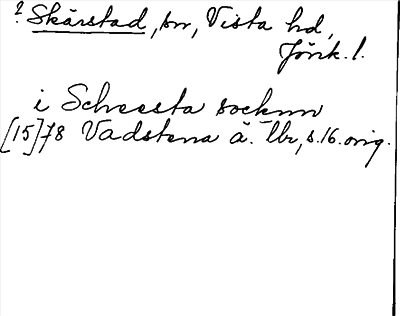 ? Skärstad, sn, Vista hd,
Jönk. l.
i Scheesta socknn
[15]78 Vadstena ä. lbr, s. 16. orig.